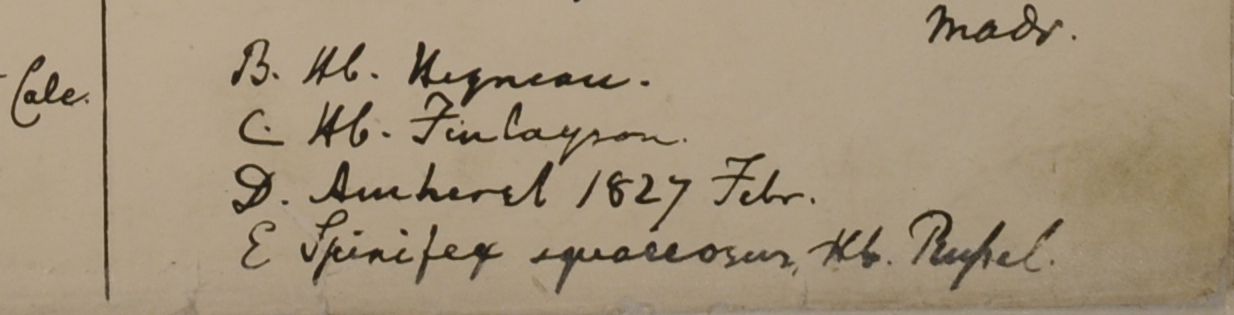 Madr.
Calc.
B. Hb. Heyneau.
C. Hb. Finlayson.
D. Amherst 1827 Febr.
E Spinifex squarrosus, Hb. Russel.